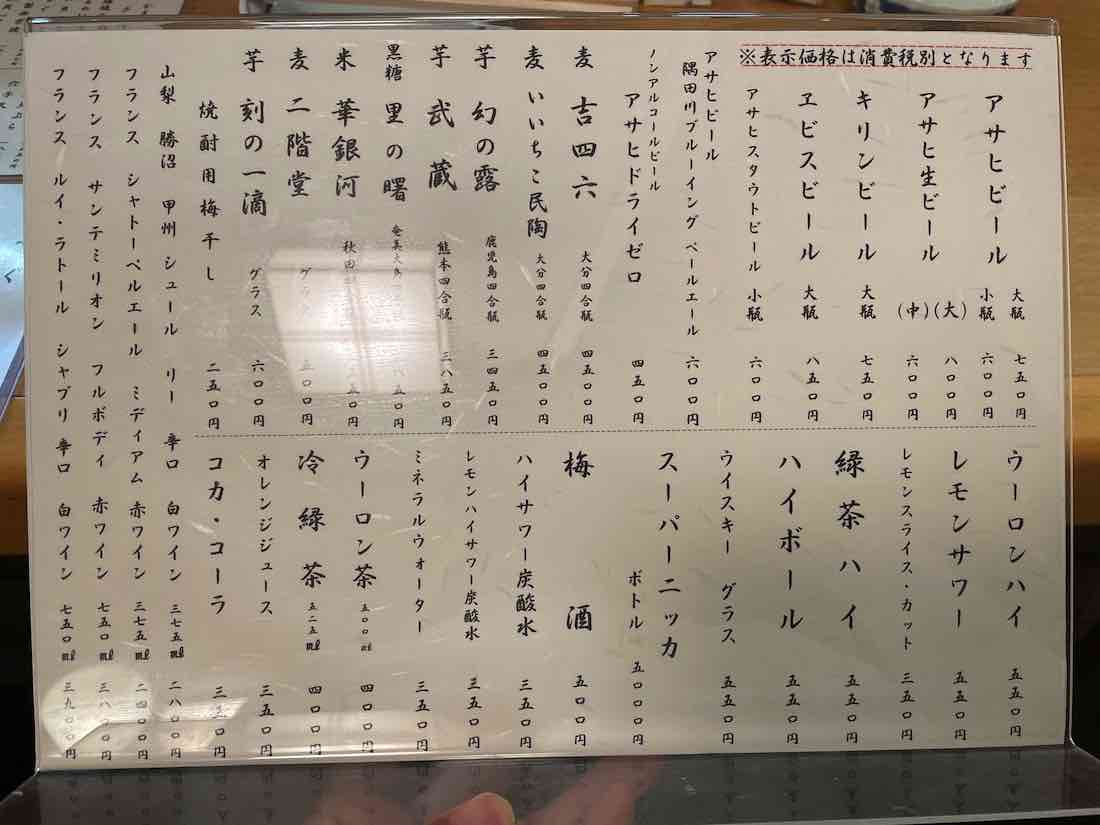 ※表示価格は消費税別となります
アサヒビール 大瓶 七五〇円
小瓶 六〇〇円
アサヒ生ビール (大) 八〇〇円
(中) 六〇〇円
キリンビール 大瓶 七五〇円
ヱビスビール 大瓶 八五〇円
アサヒスタウトビール 小瓶 六〇〇円
アサヒビール
隅田川ブルーイング ペールエール 六〇〇円
ノンアルコールビール
アサヒドライゼロ 四五〇円
麦 吉四六 大分四合瓶 四五〇〇円
麦 いいちこ民陶 大分四合瓶 四五〇〇円
芋 幻の露 鹿児島四合瓶 三四五〇円
芋 武蔵 熊本四合瓶 三八五〇円
黒糖 里の曙 奄美大島 八五〇円
米 華銀河 秋田 五〇円
麦 二階堂 グラス 五〇〇円
芋 刻の一滴 グラス 六〇〇円
焼酎用梅干し 二五〇円
ウーロンハイ 五五〇円
レモンサワー 五五〇円
レモンスライス・カット 三五〇円
緑茶ハイ 五五〇円
ハイボール 五五〇円
ウイスキー グラス 五五〇円
スーパーニッカ ボトル 五〇〇〇円
梅酒 五〇〇円
ハイサワー炭酸水 三五〇円
レモンハイサワー炭酸水 三五〇円
ミネラルウォーター 三五〇円
ウーロン茶 五〇〇㎖ 四〇〇円
冷緑茶 五二五㎖ 四〇〇円
オレンジジュース 三五〇円
コカ・コーラ 三五〇円
山梨 勝沼 甲州 シュール リー 辛口 白ワイン 三七五㎖ 二八〇〇円
フランス シャトーペルエール ミディアム 赤ワイン 三七五㎖ 二四〇〇円
フランス サンテミリオン フルボディ 赤ワイン 七五〇㎖ 三八〇〇円
フランス ルイ・ラトール シャブリ 辛口 白ワイン 七五〇㎖ 三九〇〇円